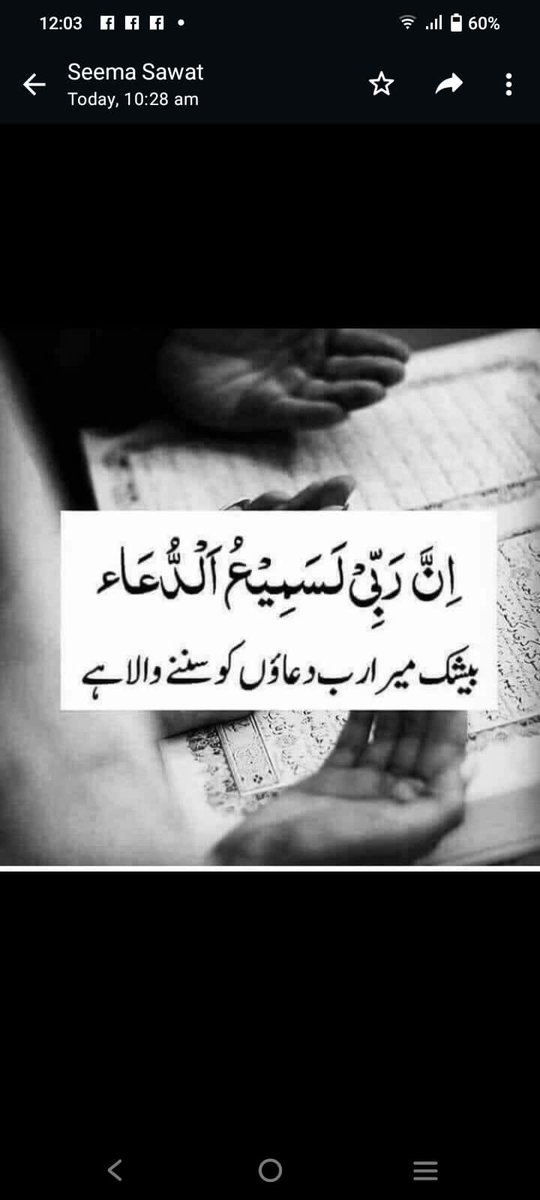 12:03
60%
Seema Sawat
Today, 10:28 am
اِنَّ رَبِّیْ لَسَمِیْعُ اَلْدُّعَاء
بیشک میرا رب دعاؤں کو سننے والا ہے